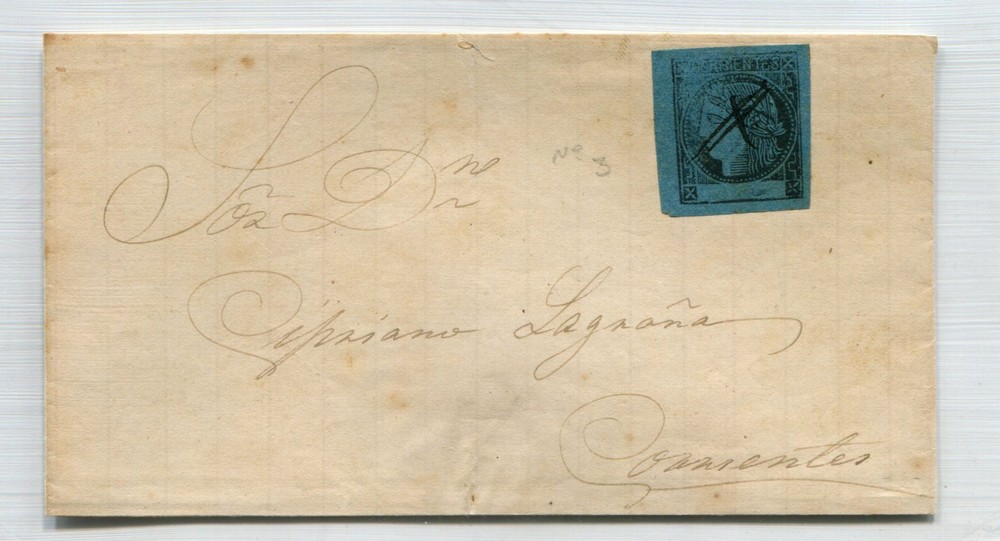 CORRIENTES
Nº 3
Sōr Dn
Cipriano Lagraña
Corrientes